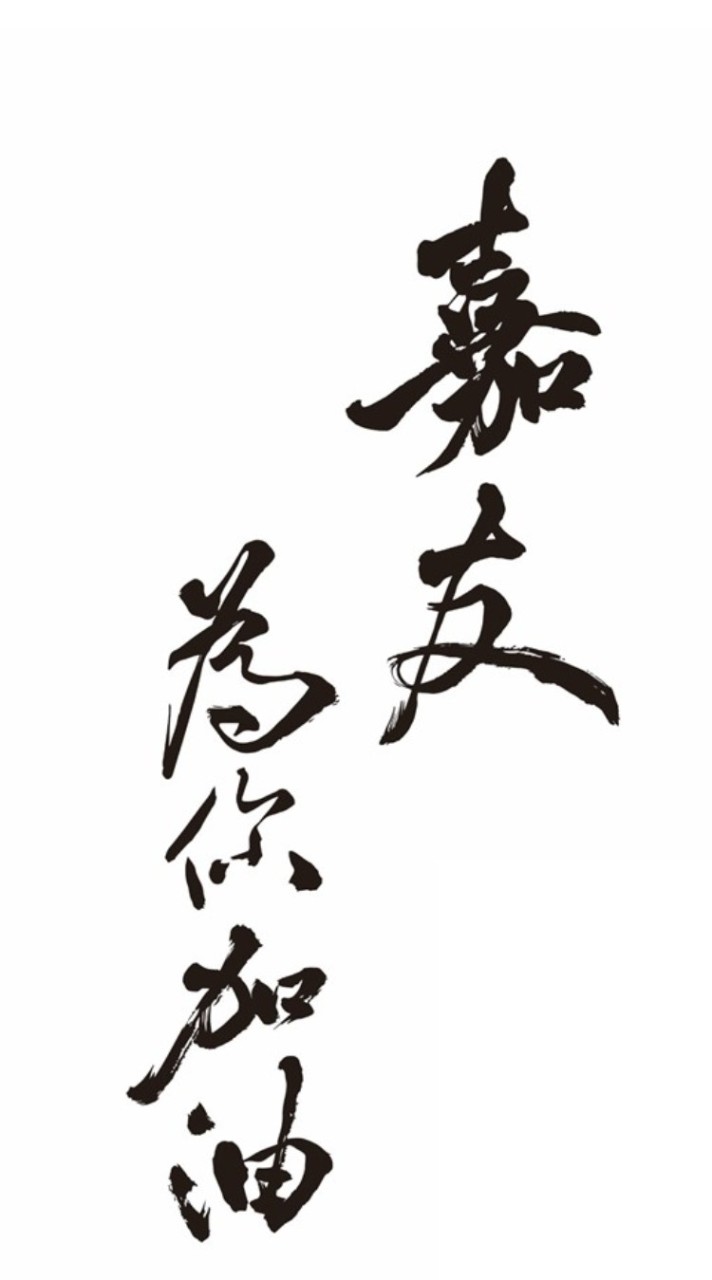 嘉友
為你加油